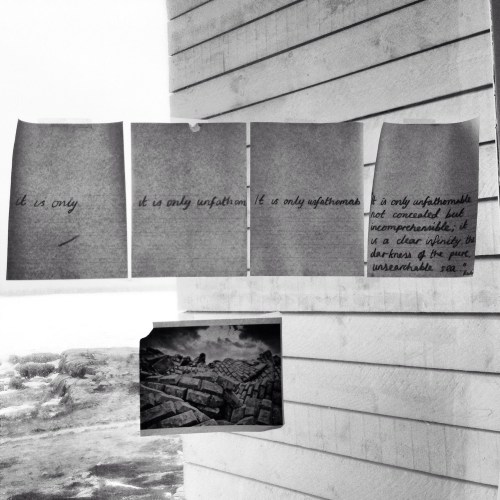 it is only
it is only unfathom
It is only unfathomab
it is only unfathomable
not concealed but
incomprehensible; it
is a clear infinity the
darkness of the pure
unsearchable sea.